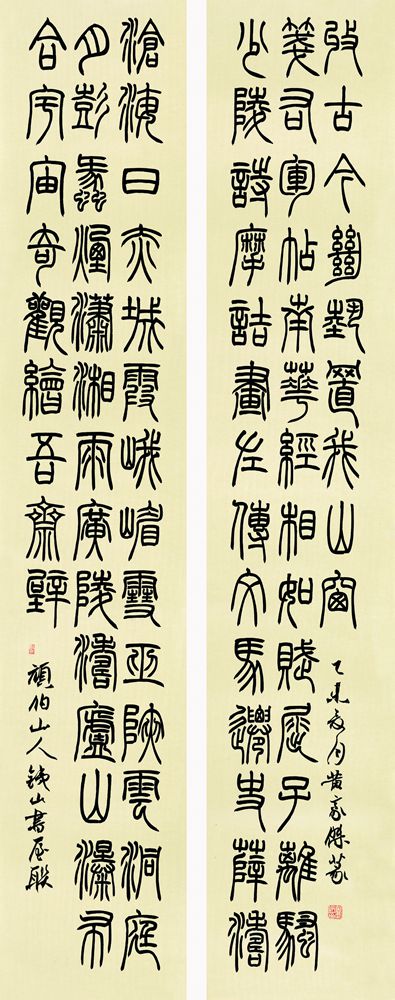 滄海日赤城霞峨嵋雪巫峽雲洞庭
月彭蠡煙瀟湘雨廣陵濤廬山瀑布
合宇宙奇觀繪吾齋壁
頑伯山人鐵山書屋聯
少陵詩摩詰畫左傳文馬遷史薛濤
箋右軍帖南華經相如賦屈子離騷
收古今絕藝置我山窗
乙未夏月黃傑篆